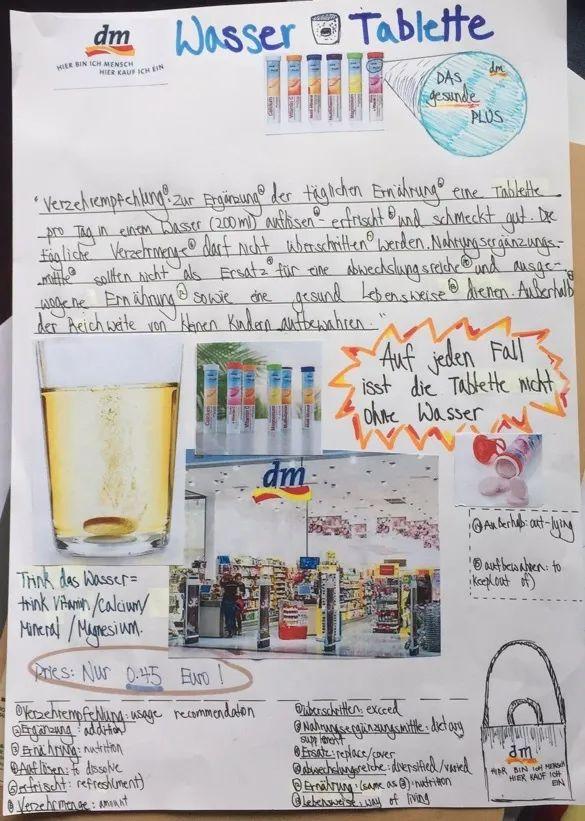 dm
HIER BIN ICH MENSCH
HIER KAUF ICH EIN
Wasser Tablette
DAS
gesunde
PLUS
dm
"Verzehrempfehlung① zur Ergänzung② der täglichen Ernährung③ eine Tablette
pro Tag in einem Wasser (200ml) auflösen④ - erfrischt⑤ und schmeckt gut. Die
tägliche Verzehrmenge⑥ darf nicht überschritten⑦ werden. Nahrungsergänzungs-
mittel⑧ sollten nicht als Ersatz⑨ für eine abwechslungsreiche⑩ und ausge-
wogene Ernährung⑪ sowie eine gesund Lebensweise⑫ dienen. Außerhalb
der Reichweite von kleinen Kindern aufbewahren."
Auf jeden Fall
isst die Tablette nicht
ohne Wasser
dm
Außerhalb: out-lying
aufbewahren: to
keep(out of)
Trink das Wasser=
trink Vitamin/Calcium/
Mineral/Magnesium.
Pries: Nur 0.45 Euro!
①Verzehrempfehlung: usage recommendation
②Ergänzung: addition
③Ernährung: nutrition
④Auflösen: to dissolve
⑤erfrischt: refreshment)
⑥Verzehrmenge: amount
⑦überschritten: exceed
⑧Nahrungsergänzungsmittle: dietary
supplement
⑨Ersatz: replace/cover
⑩abwechslungsreiche: diversified/varied
⑪Ernährung: (same as ③): nutrition
⑫Lebensweise: way of living
dm
HIER BIN ICH MENSCH
HIER KAUF ICH
EIN